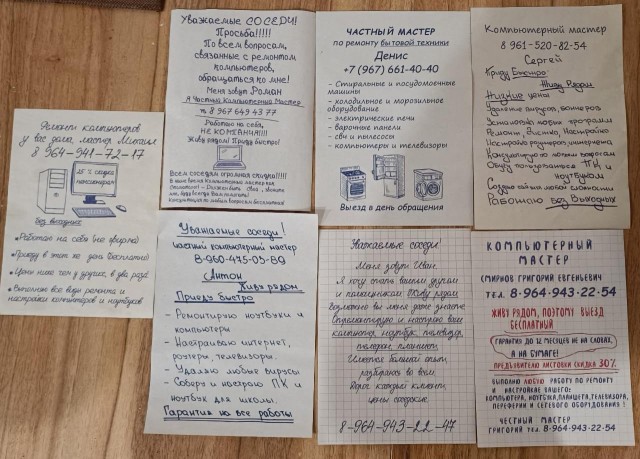 Ремонт компьютеров
у вас дома, мастер Михаил
8 964-941-72-17
25% скидка
пенсионерам
Без выходных
• Работаю на себя (не фирма)
• Приеду в этот же день (бесплатно)
• Цены ниже чем у других, в два раза!
• Выполню все виды ремонта и
настройки компьютеров и ноутбуков
Уважаемые СОСЕДИ!
Просьба!!!!!
По всем вопросам,
связанные с ремонтом
компьютеров,
обращаться ко мне!
Меня зовут Роман
я Частный Компьютерный Мастер
т. 8 967 649 43 77
Работаю на себя,
НЕ КОМПАНИЯ!!!
Живу рядом! Приду быстро!
Всем соседям огромная скидка!!!!
ЧАСТНЫЙ МАСТЕР
по ремонту бытовой техники
Денис
+7 (967) 661-40-40
- Стиральные и посудомоечные
машины
- холодильное и морозильное
оборудование
- электрические печи
- варочные панели
- свч и пылесосы
- компьютеры и телевизоры
Выезд в день обращения
Компьютерный мастер
8 961-520-82-54
Сергей
Приду Быстро. Живу Рядом
Низкие цены
Удаление вирусов, баннеров
Установка любых программ
Ремонт, Чистка, Настройка
Настройка роутеров, интернета
Консультирую по любым вопросам
Обучу пользоваться ПК и
ноутбуком
Создаю сайты любой сложности
Работаю Без Выходных
Уважаемые соседи!
Частный компьютерный мастер
8-960-475-05-89
Антон
Живу рядом
Приеду быстро
- Ремонтирую ноутбуки и
компьютеры
- Настраиваю интернет,
роутеры, телевизоры.
- Удаляю любые вирусы
- Соберу и настрою ПК и
ноутбук для школы.
Гарантия на все работы
Уважаемые соседи!
Меня зовут Иван.
Я хочу стать вашим другом
и помощником. Живу рядом
Возможно вы меня даже знаете
Отремонтирую и настрою ваш
компьютер, ноутбук, телевизор,
телефон, планшет.
Имеется большой опыт,
разбираюсь во всем.
Дорог каждый клиент,
цены соседские.
8-964-943-22-47
КОМПЬЮТЕРНЫЙ
МАСТЕР
СМИРНОВ ГРИГОРИЙ ЕВГЕНЬЕВИЧ
ТЕЛ. 8-964-943-22-54
ЖИВУ РЯДОМ, ПОЭТОМУ ВЫЕЗД
БЕСПЛАТНЫЙ
ГАРАНТИЯ ДО 12 МЕСЯЦЕВ НЕ НА СЛОВАХ,
А НА БУМАГЕ!
ПРЕДЪЯВИТЕЛЮ ЛИСТОВКИ СКИДКА 30%
ВЫПОЛНЮ ЛЮБУЮ РАБОТУ ПО РЕМОНТУ
И НАСТРОЙКЕ ВАШЕГО:
КОМПЬЮТЕРА, НОУТБУКА, ПЛАНШЕТА, ТЕЛЕВИЗОРА,
ПЕРЕФЕРИИ И СЕТЕВОГО ОБОРУДОВАНИЯ!
ЧЕСТНЫЙ МАСТЕР
ГРИГОРИЙ ТЕЛ. 8-964-943-22-54